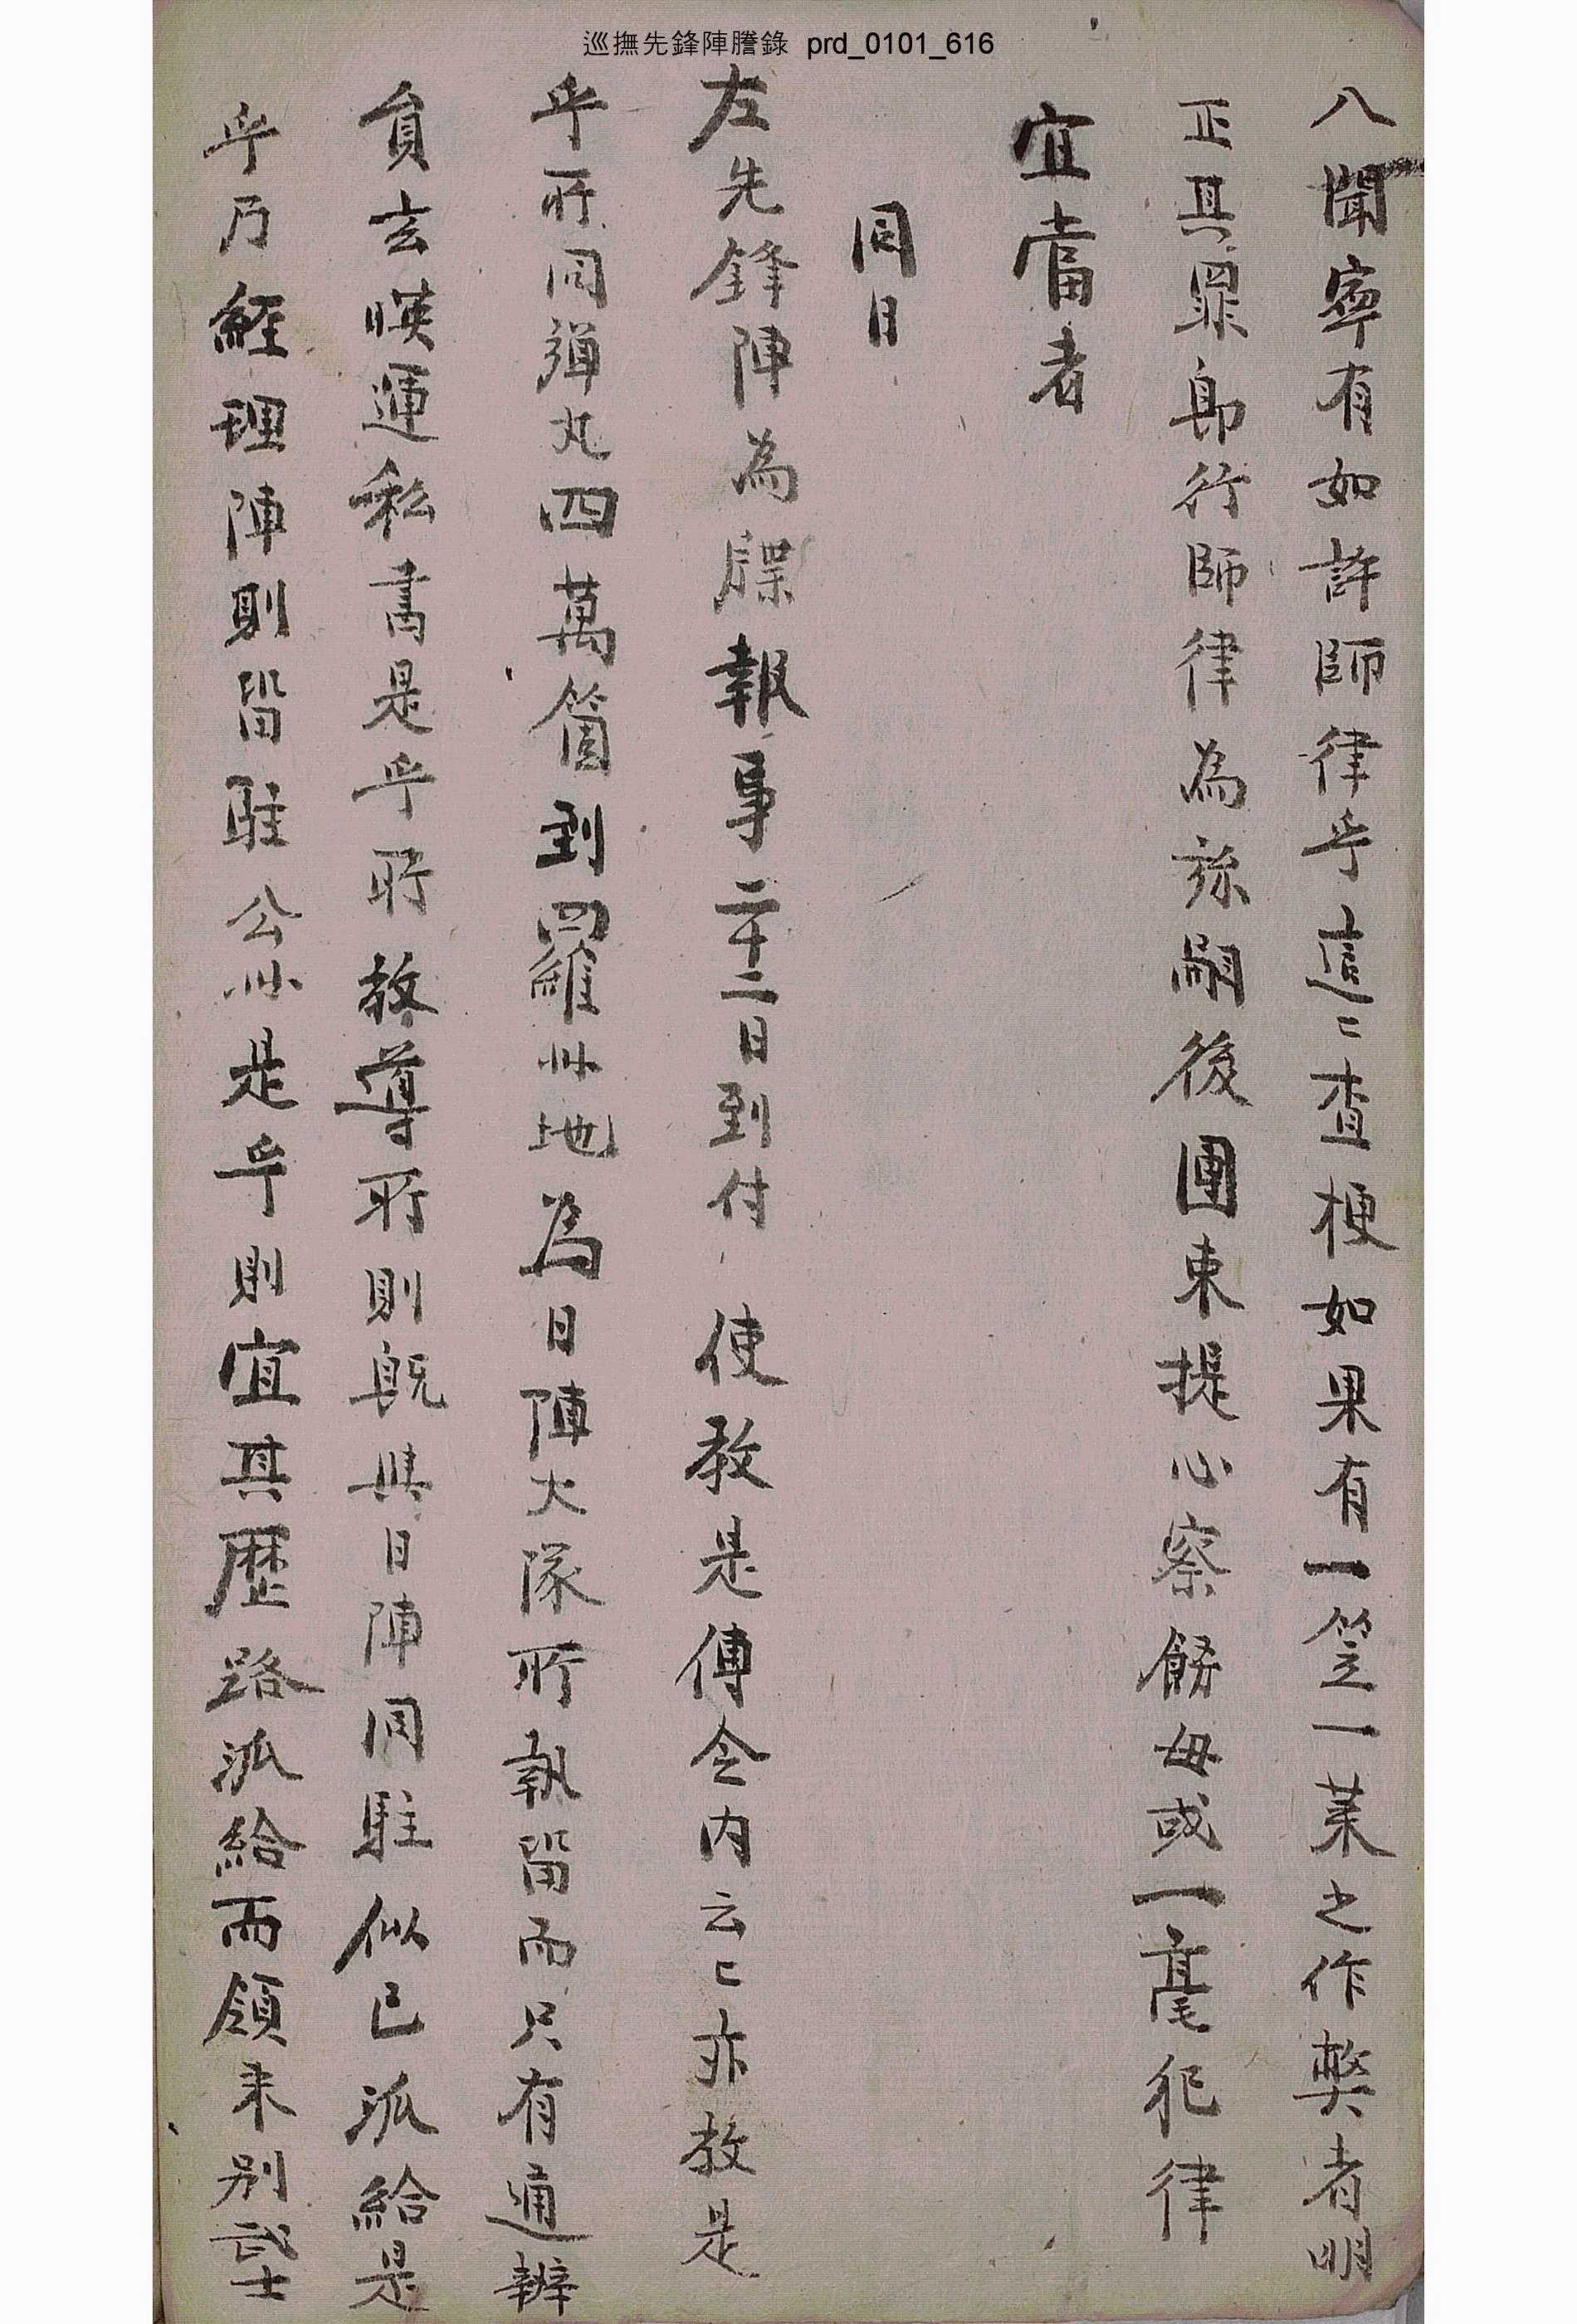 巡撫先鋒陣謄錄 prd_0101_616
八聞寧有如許師律乎這〻查梗如果有一笠一葉之作弊者明
正其罪卽行師律爲旀嗣後團束提心察飭毋或一毫犯律
宜當者
同日
左先鋒陣爲牒報事二十二日到付 使敎是傳令內云〻亦敎是
乎所同彈丸四萬箇到羅州地爲日陣大隊所執留而只有通辦
員玄暎運私書是乎所敎導所則旣與日陣同駐似已派給是
乎乃經理陣則留駐公州是乎則宜其歷路派給而領來別哉